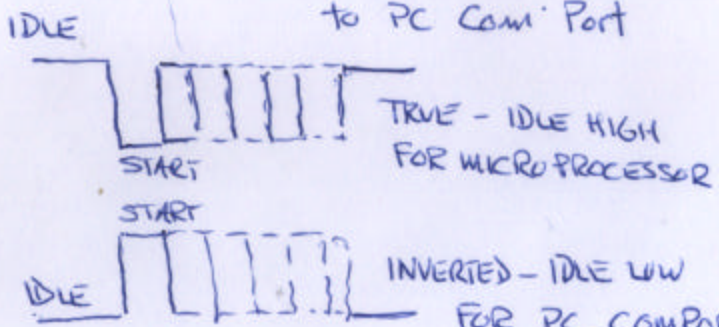 to PC Com' Port
IDLE
TRUE - IDLE HIGH
FOR MICROPROCESSOR
START
START
IDLE
INVERTED - IDLE LOW
FOR PC COMPOR